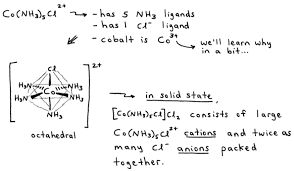 Co(NH₃)₅Cl²⁺ → - has 5 NH₃ ligands
- has 1 Cl⁻ ligand
- cobalt is Co³⁺
we'll learn why
in a bit...
2+
Cl
H₃N NH₃
Co
H₃N NH₃
NH₃
octahedral
→ in solid state,
[Co(NH₃)₅Cl]Cl₂ consists of large
Co(NH₃)₅Cl²⁺ cations and twice as
many Cl⁻ anions packed
together.